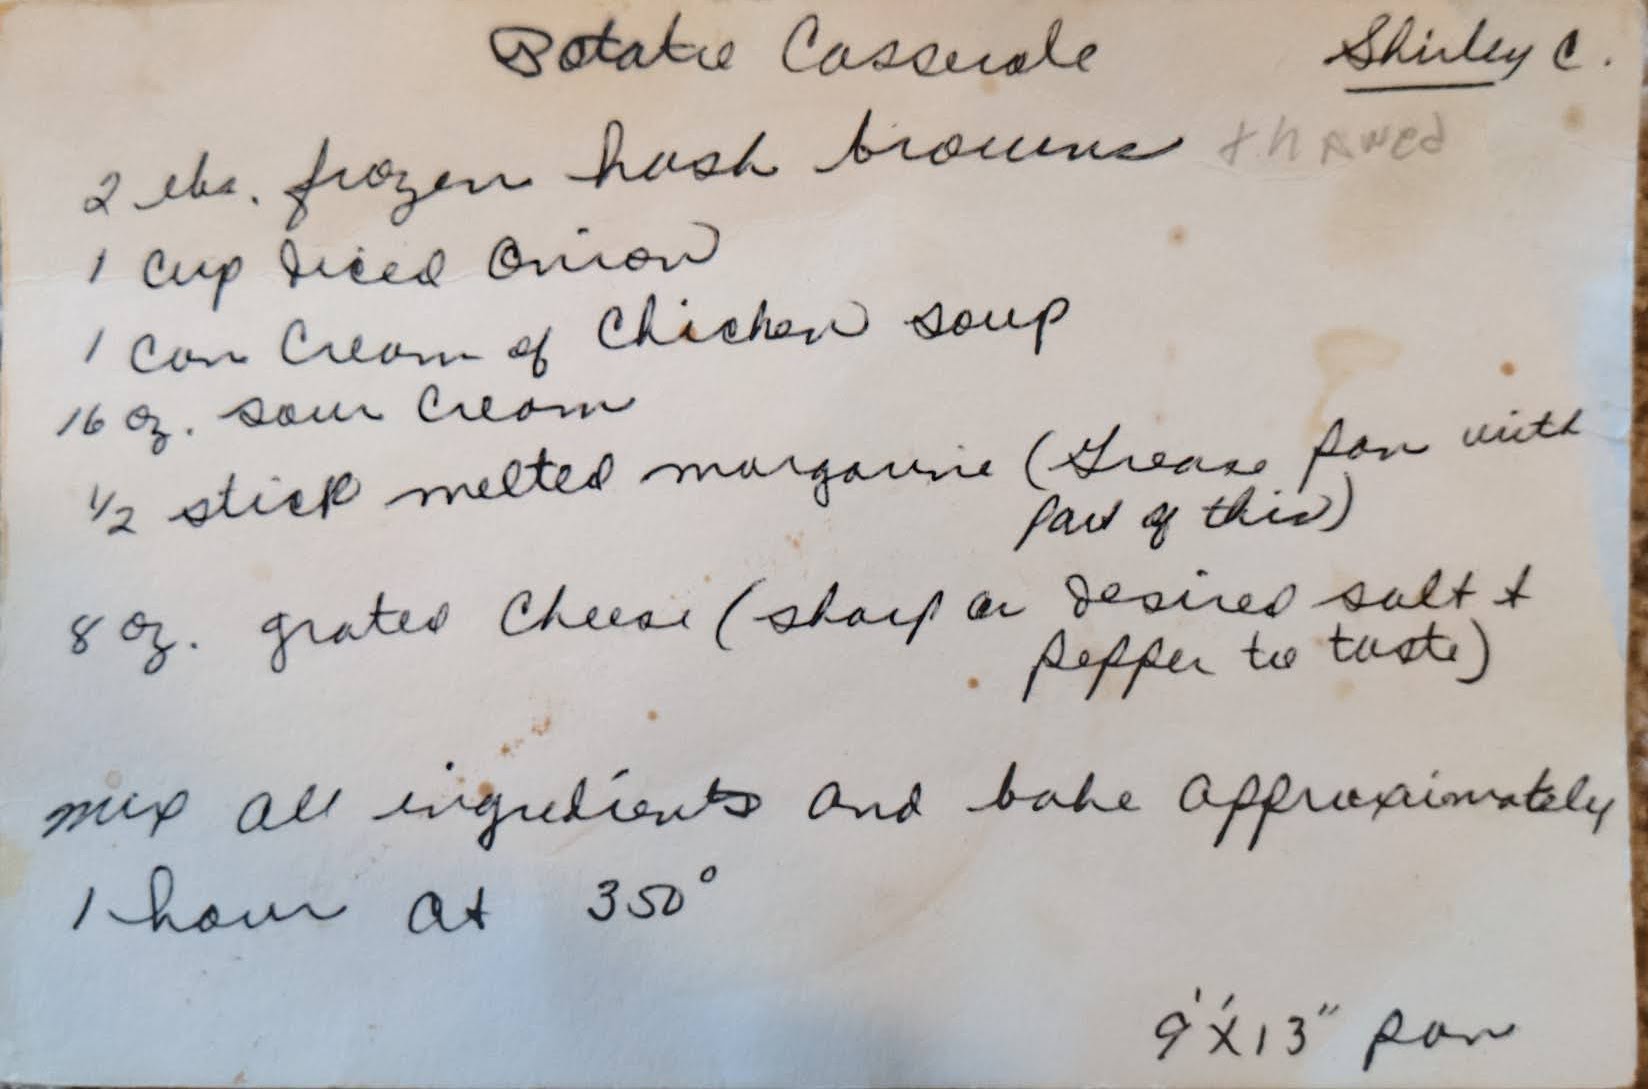 Potatoe Casserole Shirley C.
2 lbs. frozen hash browns thawed
1 cup diced onion
1 can cream of chicken soup
16 oz. sour cream
1/2 stick melted margarine (Grease pan with
part of this)
8 oz. grated cheese (sharp or desired salt &
pepper to taste)
mix all ingredients and bake approximately
1 hour at 350°
9"X13" pan